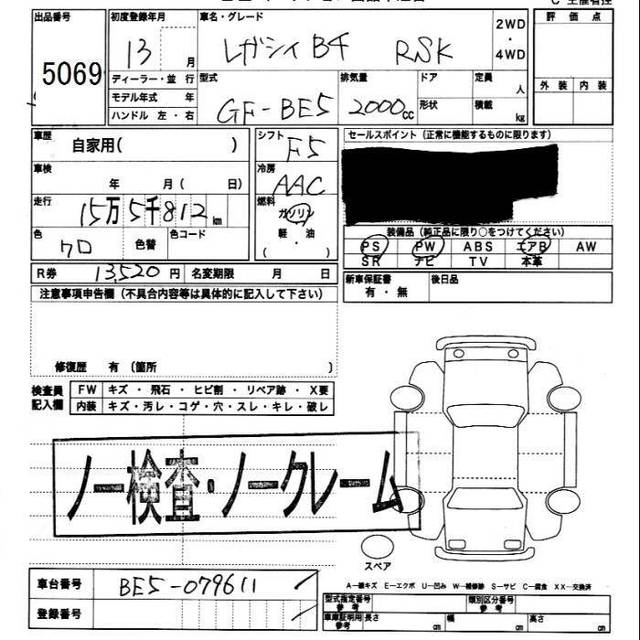 出品番号 初度登録年月 車名・グレード 2WD・4WD 評価点
5069 13 月 レガシィB4 RSK
ディーラー・並行 型式 排気量 ドア 定員 人
モデル年式 年 GF-BE5 2000cc 形状 積載 kg 外装 内装
ハンドル 左・右
車歴 自家用( ) シフト F5 セールスポイント(正常に機能するものに限ります)
車検 年 月( 日) 冷房 AAC
走行 15万5千812km 燃料 ガソリン 軽・油
色 クロ 色替 色コード
装備品(純正品に限り○をつけてください)
PS PW ABS エアB AW
SR ナビ TV 本革
R券 13,520円 名変期限 月 日 新車保証書 有・無 後日品
注意事項申告欄(不具合内容等は具体的に記入して下さい)
修復歴 有(箇所 )
検査員記入欄 FW キズ・飛石・ヒビ割・リペア跡・X要
内装 キズ・汚レ・コゲ・穴・スレ・キレ・破レ
ノー検査・ノークレーム
スペア
A―線キズ E―エクボ U―凹み W―補修跡 S―サビ C―腐食 XX―交換済
車台番号 BE5-079611
登録番号
型式指定番号 参考 類別区分番号 参考
車庫証明用 参考 長さ cm 幅 cm 高さ cm